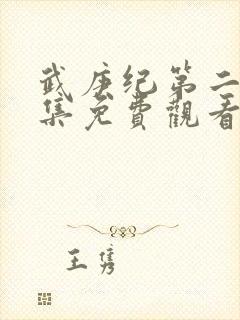 武庚纪第二
集免费觀看
王隽